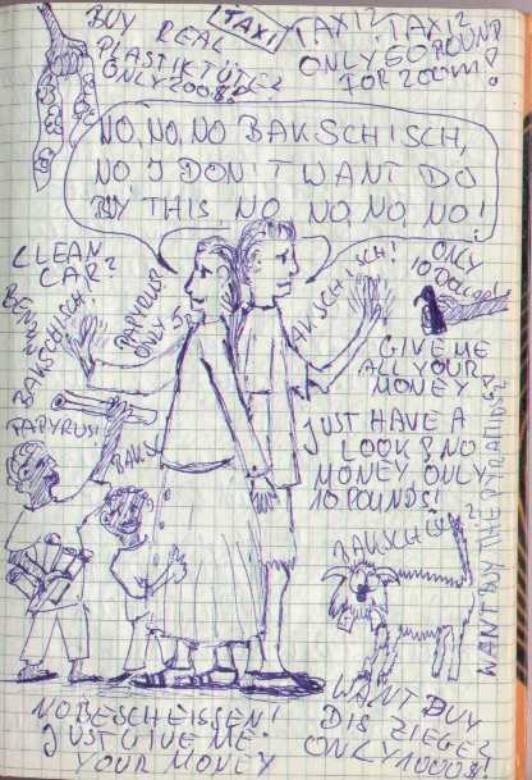 BUY REAL
PLASTIKTÜTE?
ONLY 200$
TAXI
TAXI? TAXI?
ONLY 60 POUND
FOR 200m!
NO, NO, NO BAKSCHISCH,
NO I DON'T WANT DO
BUY THIS, NO, NO, NO, NO!
CLEAN
CAR?
BENZIN
BAKSCHISCH!
PAPYRUS!
ONLY 5$
BAKSCHISCH!
ONLY
10
GIVE ME
ALL YOUR
MONEY
PAPYRUS!
BAKS
JUST HAVE A
LOOK & NO
MONEY ONLY
10 POUNDS!
WANT BUY THE PYRAMIDS?
BAKSCHISCH?
WANT BUY
DIS ZIEGE?
ONLY 1000$!
NO BESCHEISSEN!
JUST GIVE ME
YOUR MONEY